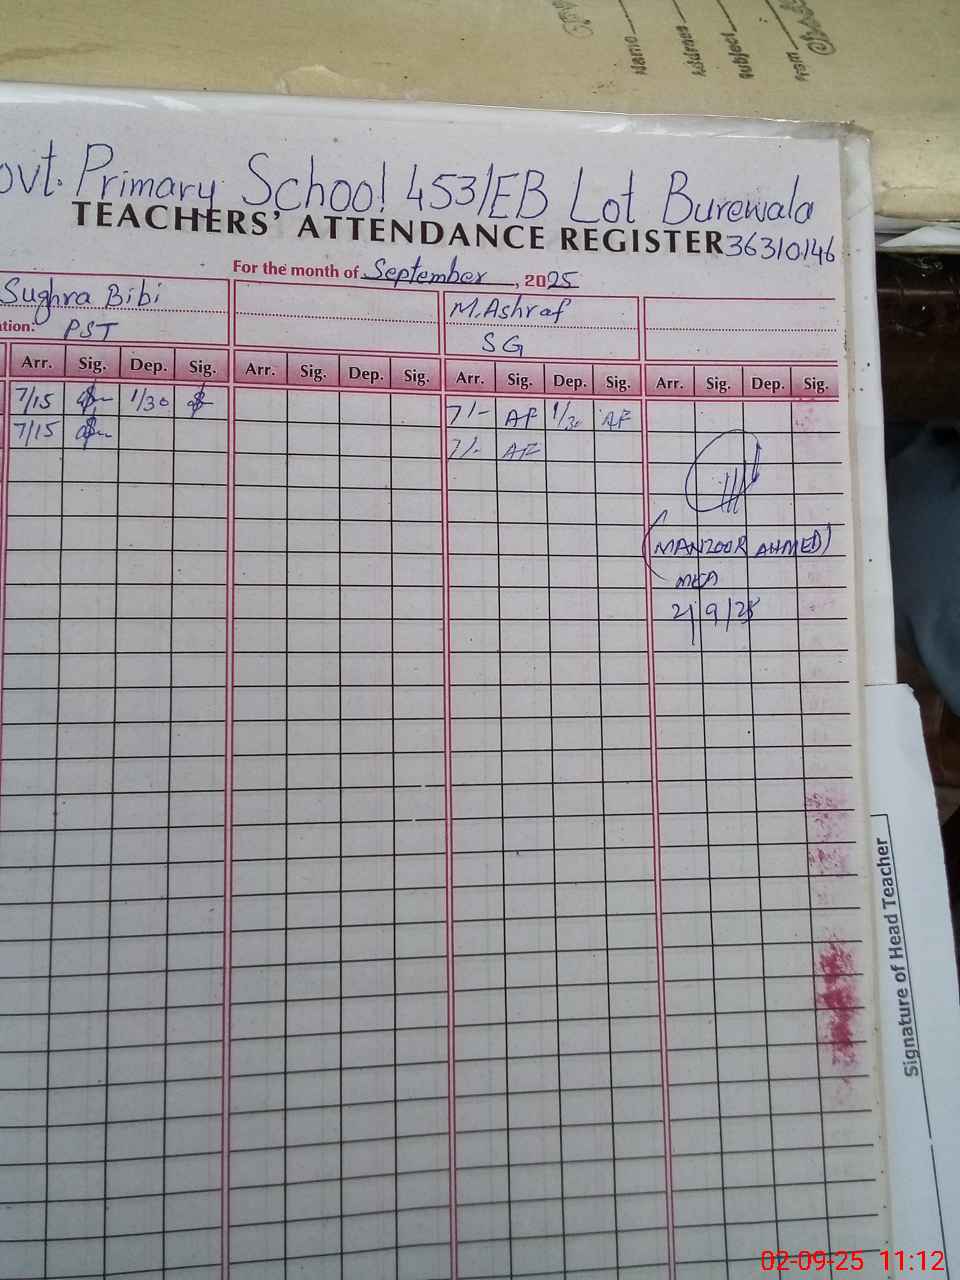 Name
Address
Subject
From
ovt. Primary School 453/EB Lot Burewala
TEACHERS' ATTENDANCE REGISTER 36310146
For the month of September, 2025
Sughra Bibi M. Ashraf
tion: PST SG
Arr. Sig. Dep. Sig. Arr. Sig. Dep. Sig. Arr. Sig. Dep. Sig. Arr. Sig. Dep. Sig.
7/15 1/30 7/- AF 1/30 AF
7/15 7/- AF
(MANZOOR AHMED)
MEA
2/9/25
Signature of Head Teacher
02-09-25 11:12